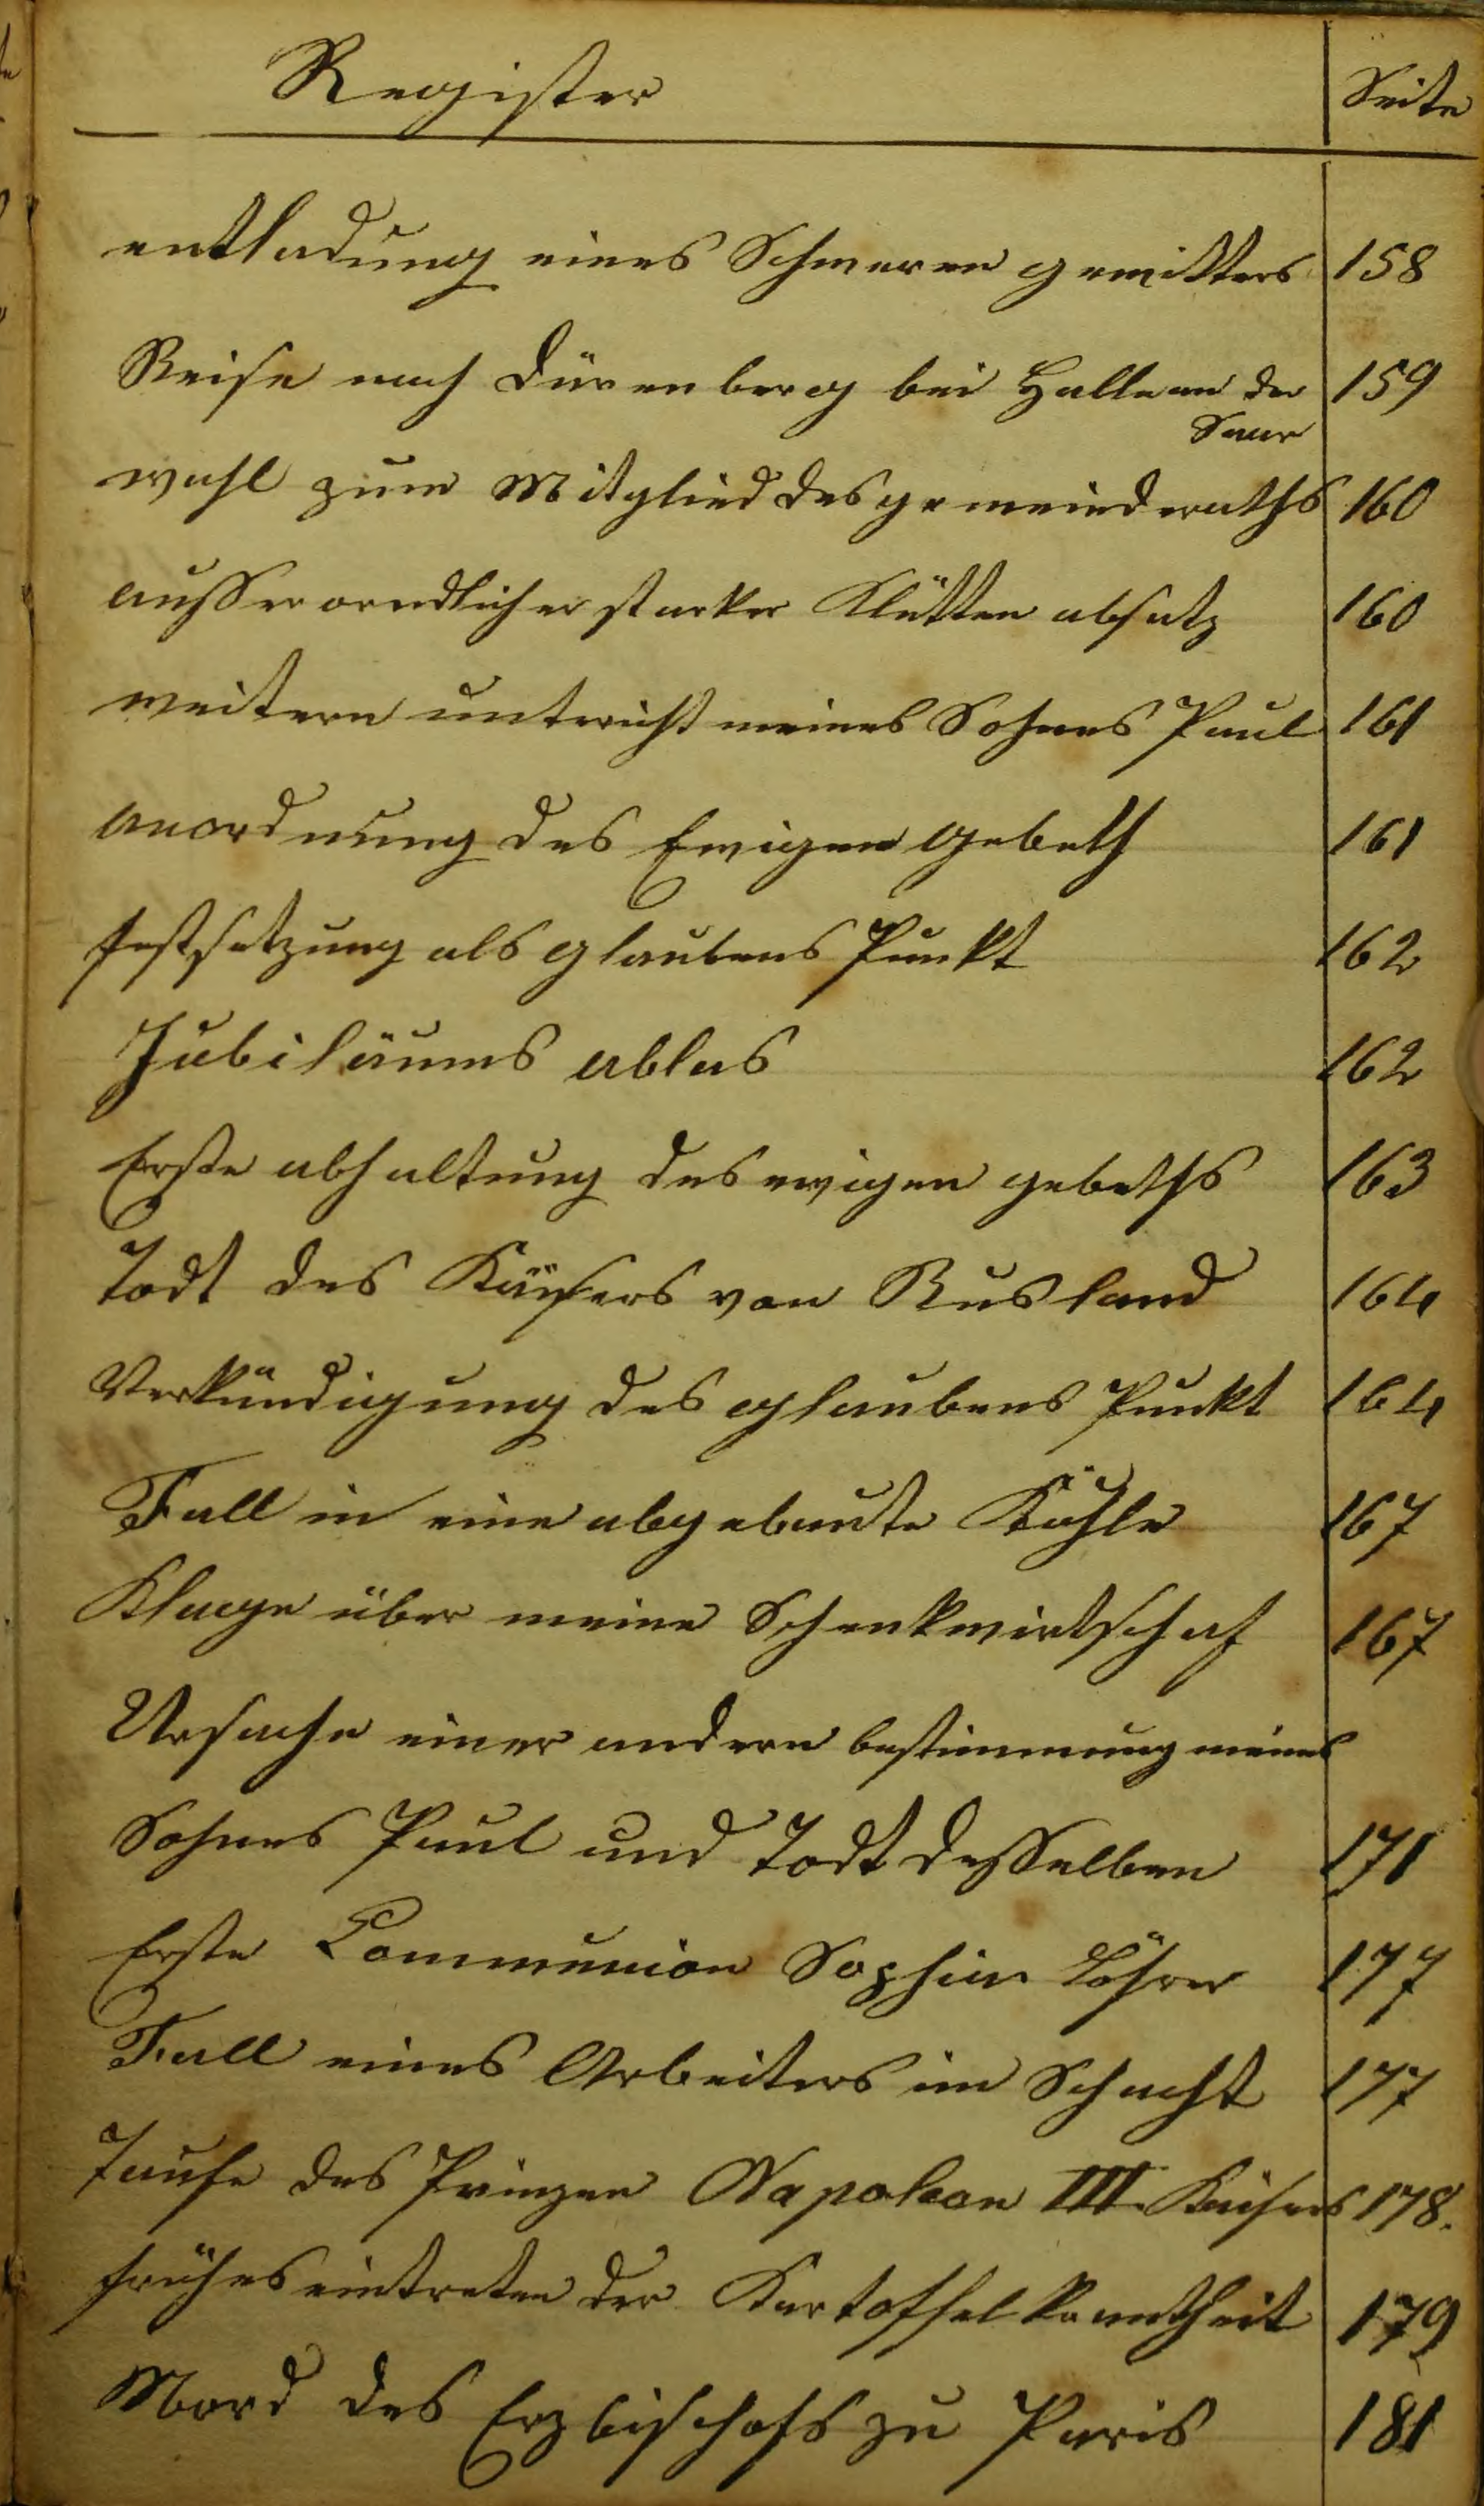 Register Seite
entladung eines Schweren gewitters 158
Reise nach Dürenberg bei Halle an der 159
Saar
wahl zum Mitglied des gemeinderaths 160
ausserorndlicher starker Klütten absatz 160
weitern unterricht meines Sohnes Paul 161
anordnung des Ewigen gebeth 161
festsetzung als glaubens Punkt 162
Jubiläums ablas 162
Erste abhaltung des ewigen gebeths 163
Todt des Kaisers von Rusland 164
Verkündigung des glaubens Punkt 164
Fall in eine abgebaute Kuhle 167
Klage über meine Schenkwirtschaf 167
Ursache einer andern bestimmung meines
Sohnes Paul und Todt desselben 171
Erste Communion Sophia Löhrer 177
Fall eines Arbeiters im Schacht 177
Taufe des Prinzen Napoleon III. Kaisers 178.
frühes eintreten der Kartoffelkrantheit 179
Mord des Erzbischofs zu Paris 181